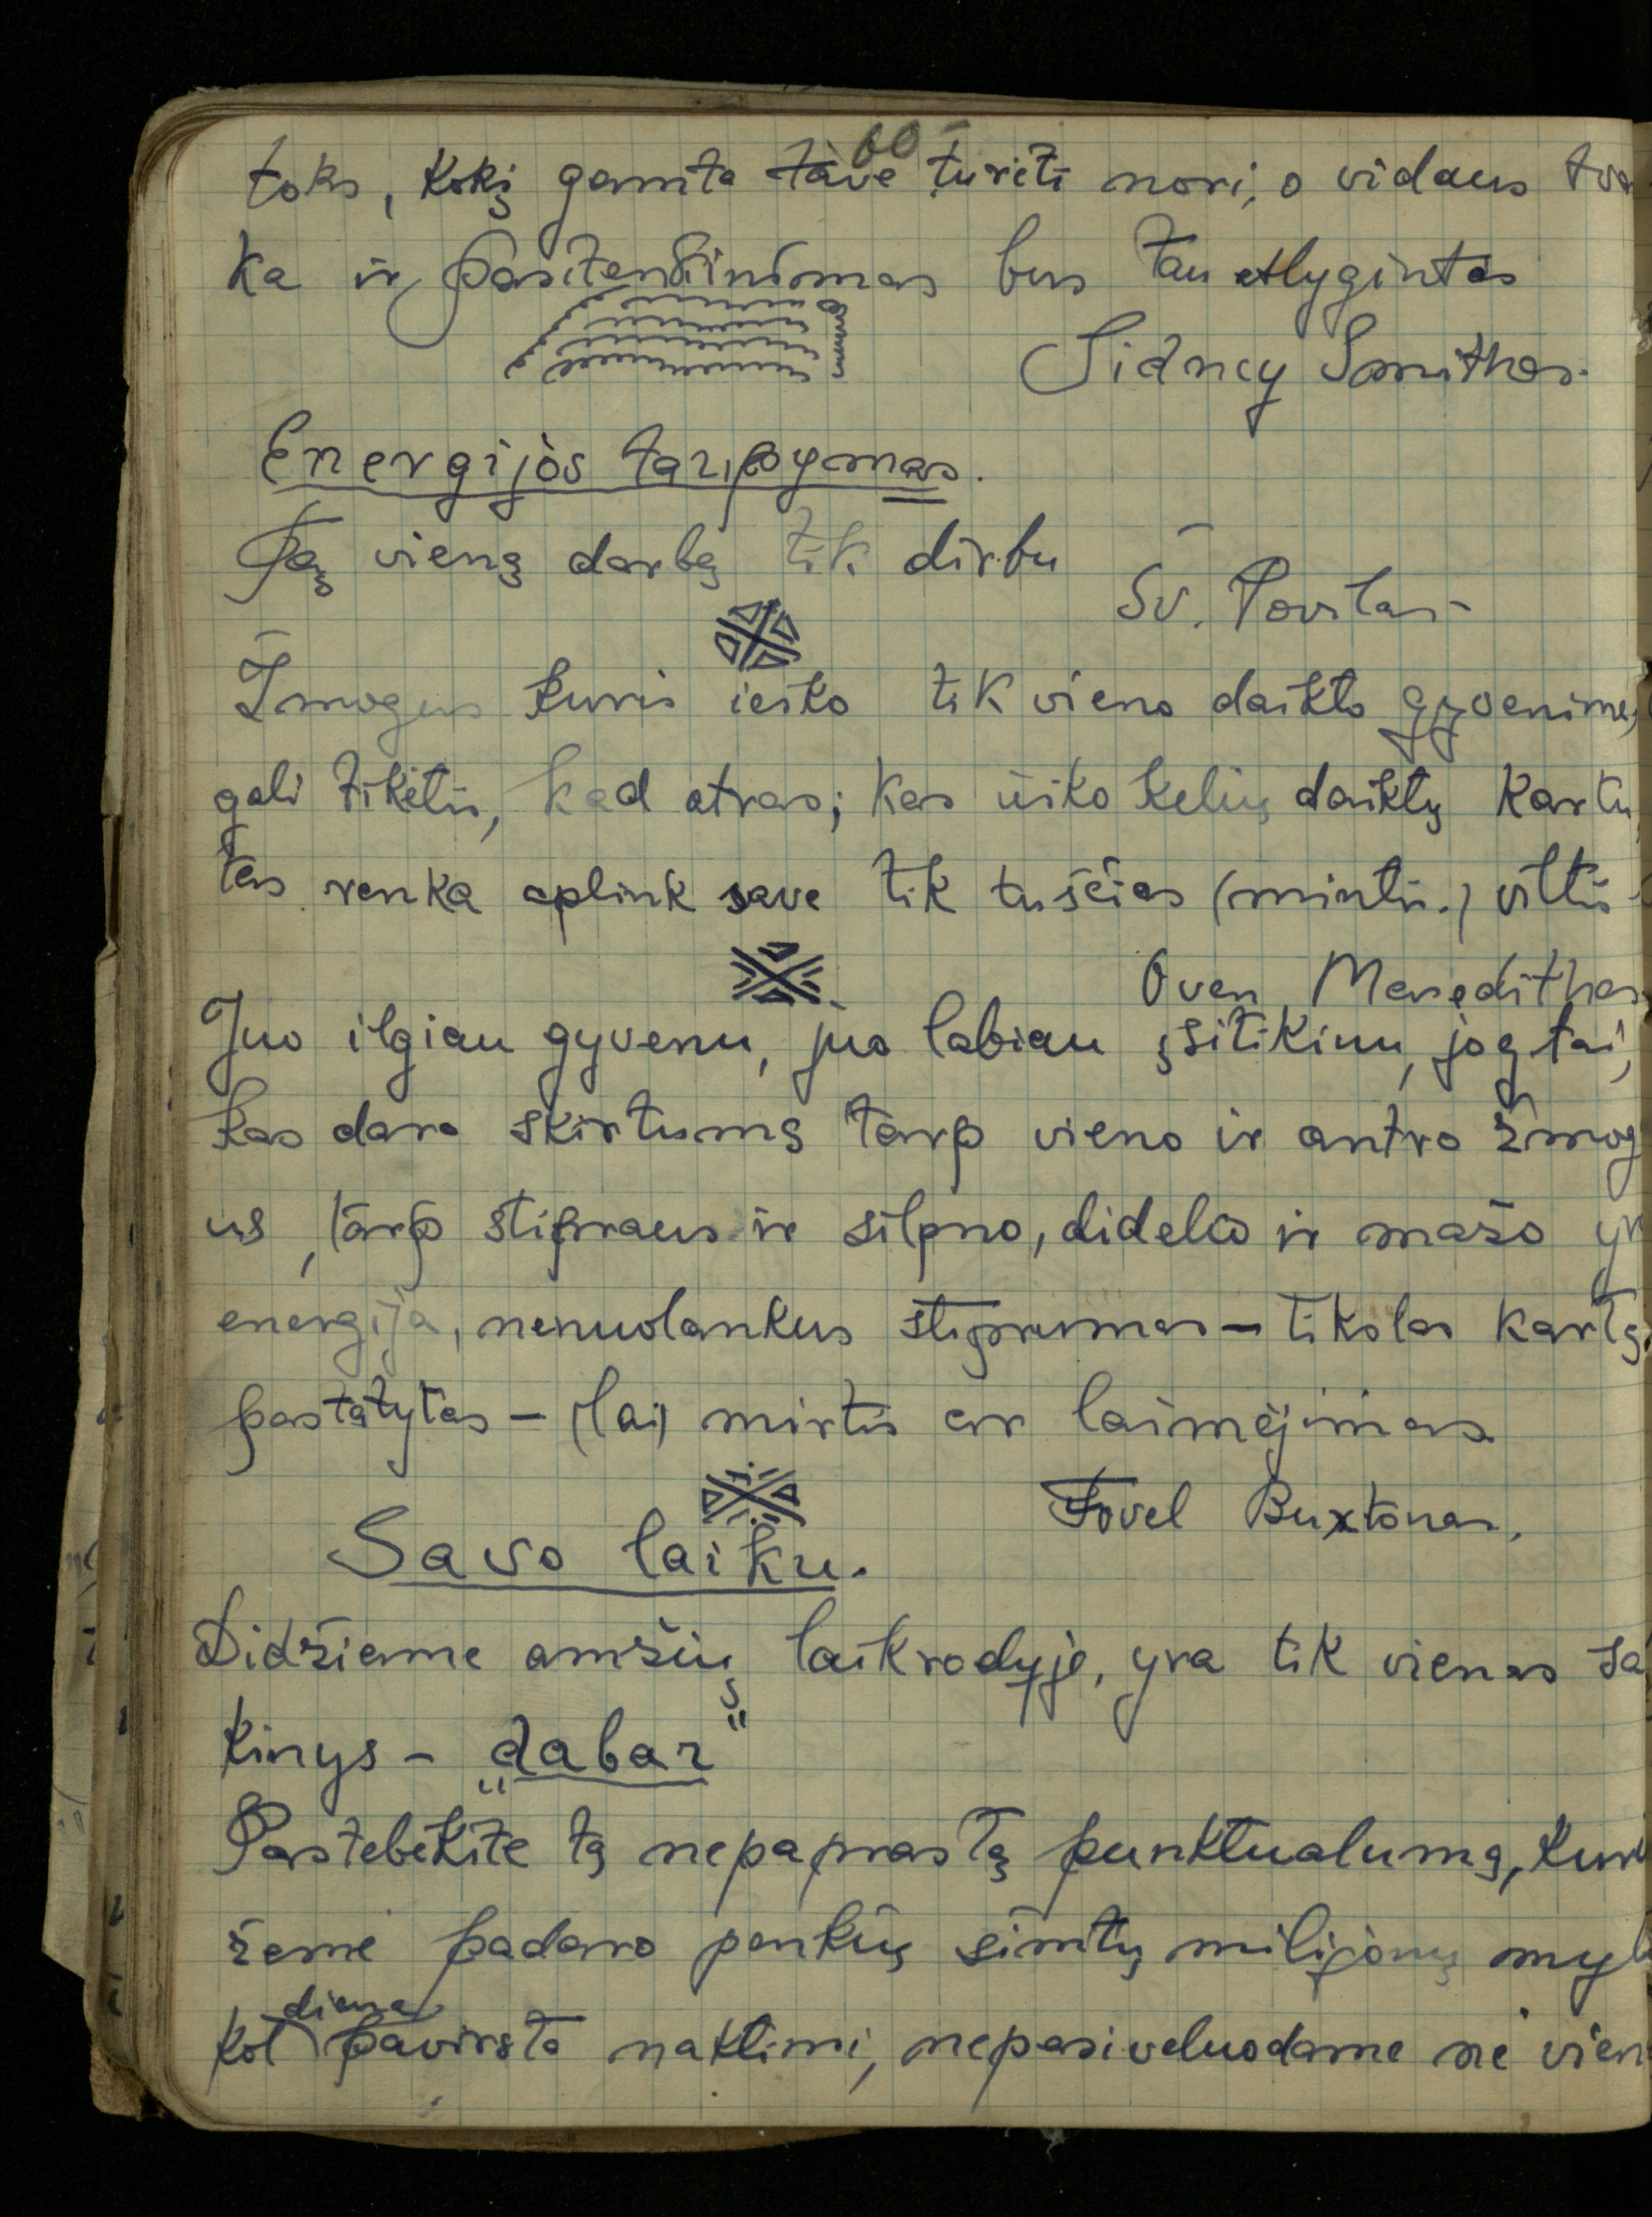 60
toks, kokį gamta tave turėti nori, o vidaus tvar
ka ir pasitenkinimas bus tau atlygintas
Sidney Smithas.
Energijos tarpymas.
Tą vieną darbą tik dirbu
Šv. Povilas
Žmogus kuris ieško tik vieno daikto gyvenime,
gali tikėtis, kad atras; kas ieško kelių daiktų kartu,
tas renka aplink save tik tuščias (mintis.) viltis
Oven Meredithas
Juo ilgiau gyvenu, juo labiau įsitikinu, jog tai,
kas daro skirtumą tarp vieno ir antro žmog
us, tarp stipraus ir silpno, didelio ir mažo yr
energija, nenuolankus stiprumas – tikslas kartą
pastatytas – (tai) mirtis ar laimėjimas.
Fovel Buxtonas.
Savo laiku.
Didžiame amžių laikrodyje, yra tik vienas sa
kinys – „dabar"
Pastebėkite tą nepaprastą punktualumą, kurį
žemė padaro penkių šimtų milijonų myl
kol diena pavirsta naktimi, nepasivėluodama nė vien